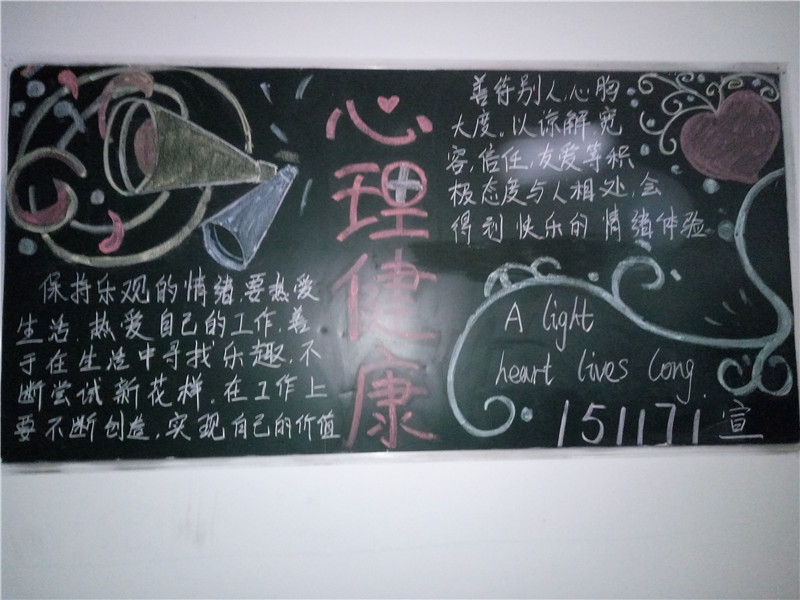 心理健康
善待别人,心胸
大度。以谅解,宽
容,信任,友爱等积
极态度与人相处,会
得到快乐的情绪体验
保持乐观的情绪,要热爱
生活,热爱自己的工作,善
于在生活中寻找乐趣,不
断尝试新花样,在工作上
要不断创造,实现自己的价值
A light
heart lives long.
151171 宣